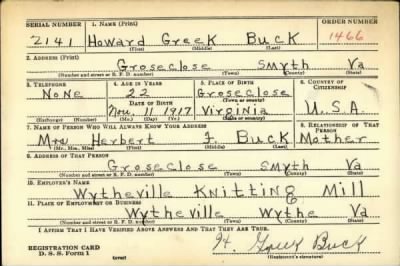 SERIAL NUMBER 1. NAME (Print) ORDER NUMBER
2141 Howard Greek Buck 1466
(First) (Middle) (Last)
2. ADDRESS (Print)
Groseclose Smyth Va
(Number and street or R. F. D. number) (Town) (County) (State)
3. TELEPHONE 4. AGE IN YEARS 5. PLACE OF BIRTH 6. COUNTRY OF CITIZENSHIP
None 22 Groseclose
DATE OF BIRTH (Town or county)
Nov. 11 1917 Virginia U.S.A.
(Exchange) (Number) (Mo.) (Day) (Yr.) (State or country)
7. NAME OF PERSON WHO WILL ALWAYS KNOW YOUR ADDRESS 8. RELATIONSHIP OF THAT PERSON
Mrs Herbert F. Buck Mother
(Mr., Mrs., Miss) (First) (Middle) (Last)
9. ADDRESS OF THAT PERSON
Groseclose Smyth Va
(Number and street or R. F. D. number) (Town) (County) (State)
10. EMPLOYER'S NAME
Wytheville Knitting Mill
11. PLACE OF EMPLOYMENT OR BUSINESS
Wytheville Wythe Va
(Number and street or R. F. D. number) (Town) (County) (State)
I AFFIRM THAT I HAVE VERIFIED ABOVE ANSWERS AND THAT THEY ARE TRUE.
H. Greek Buck
REGISTRATION CARD
D. S. S. Form 1 (over) (Registrant's signature)